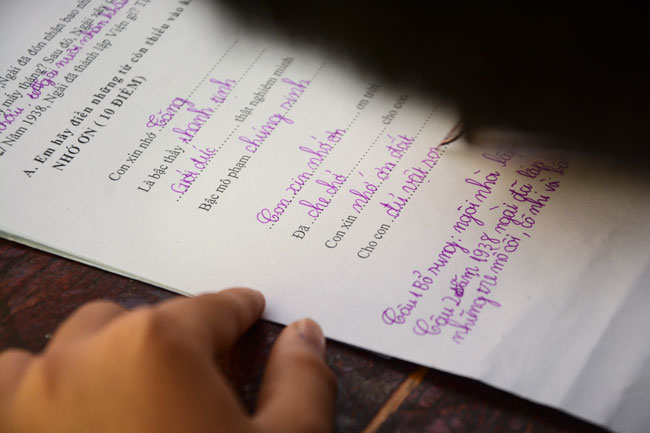 , Ngài đã đón nhận bao nhi
, mấy tháng? Sau đó, Ngài
Năm 1938, Ngài đã thành lập Viện gì?
A. Em hãy điền những từ còn thiếu vào
NHỚ ƠN ( 10 ĐIỂM)
Con xin nhớ Tăng
Là bậc thầy thanh tịnh
Giới đức thật nghiêm minh
Bậc mô phạm chúng sinh
Con xin nhớ ơn
Đã che chở
Con xin nhớ ơn đất cho con
Cho con đủ vật
Câu 1 Bổ sung: ngôi nhà
Câu 2 năm 1938 ngài đã lập
những trẻ mồ côi,